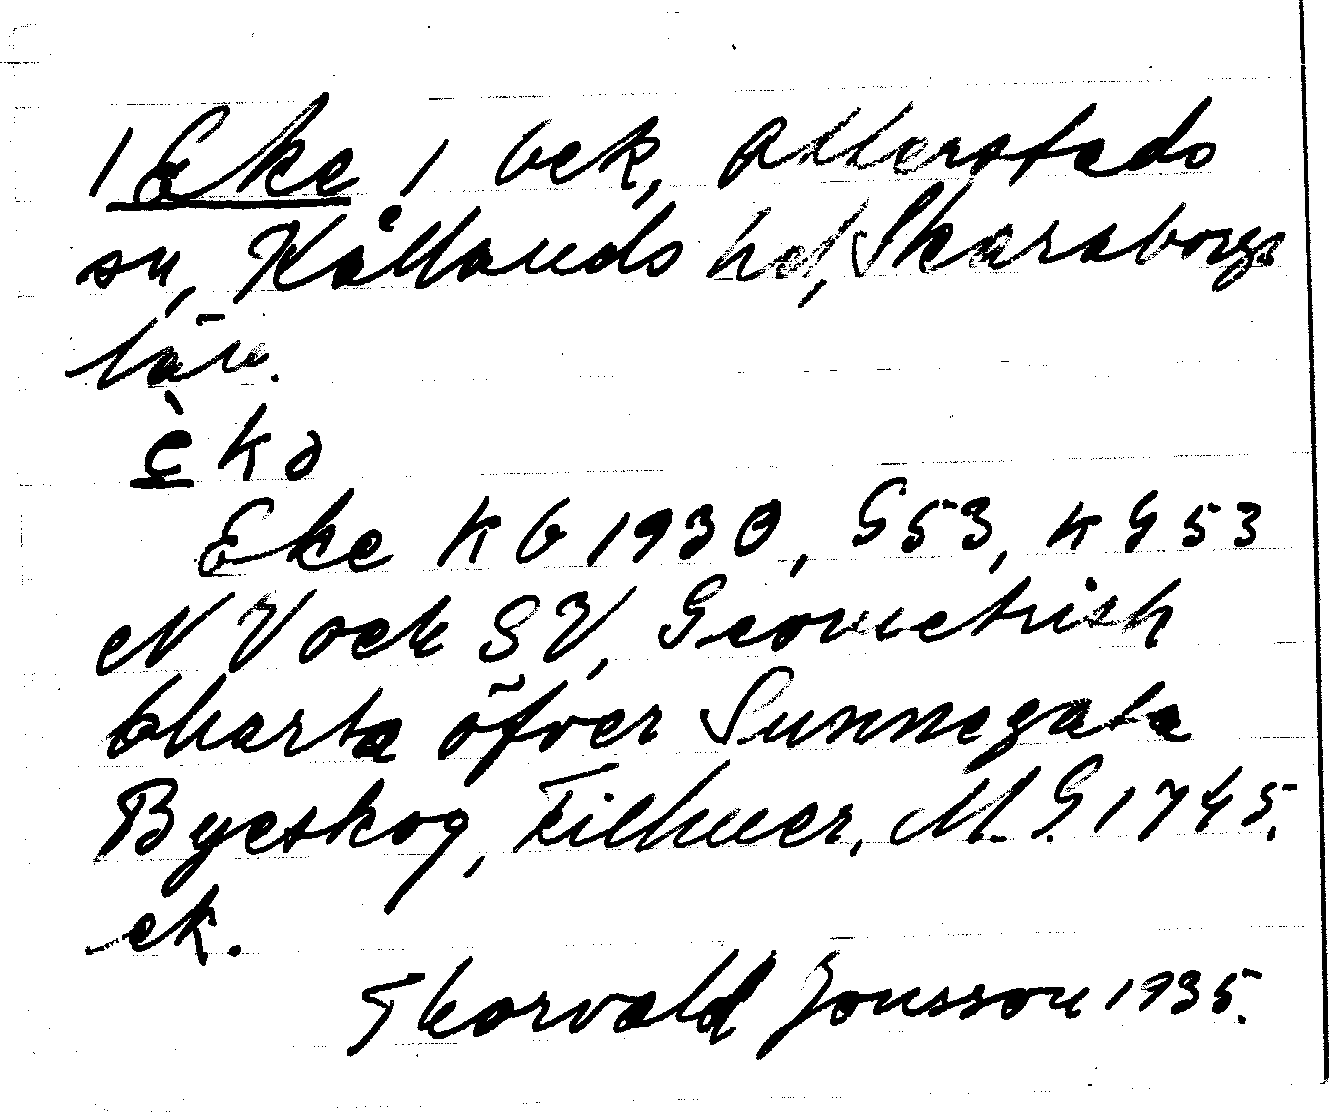 1 Eke, bek, Otterstads
sn, Kållands hd, Skaraborgs
län.
èkə
Eke KB 1930, G53, KG 53
NV och SV, Geometrisk
Charta öfver Sunnegata
Byeskog, Filhuer, M. G. 1745.
ek.
Thorvald Jonsson 1935.